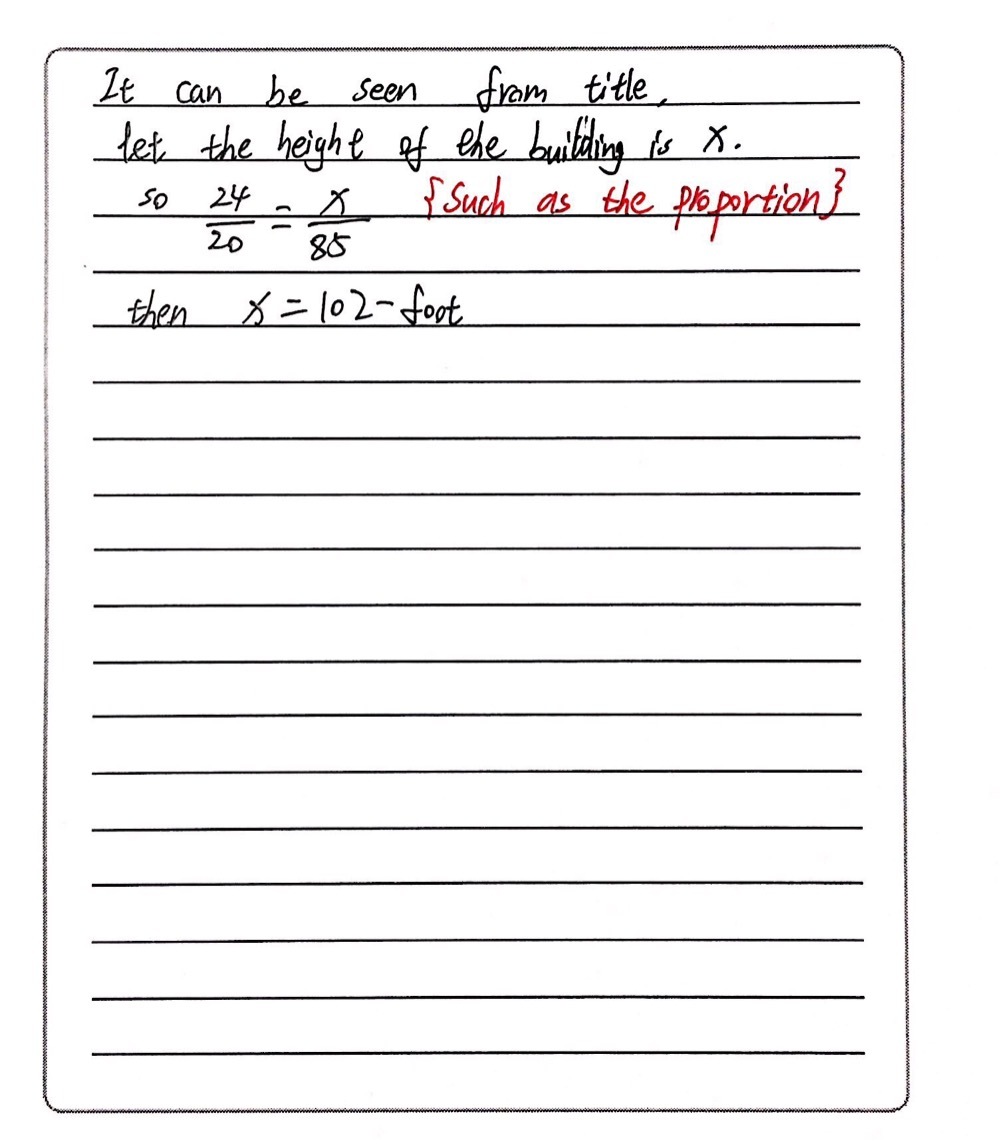 It can be seen from title,
let the height of the building is x.
so 24/20 = x/85 {Such as the proportion}
then x = 102-foot